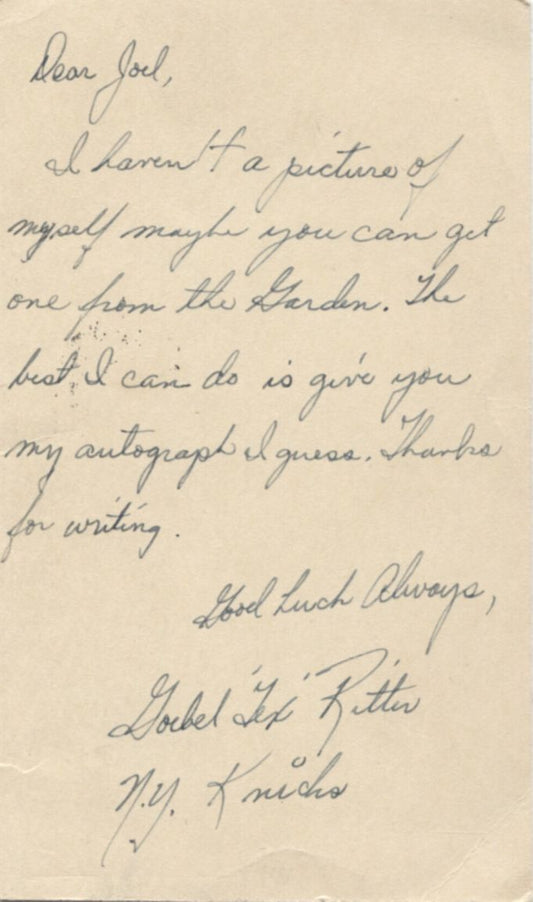 Dear Joel,
I haven't a picture of
myself maybe you can get
one from the Garden. The
best I can do is give you
my autograph I guess. Thanks
for writing.
Good Luck Always,
Goebel "Tex" Ritter
N.Y. Knicks